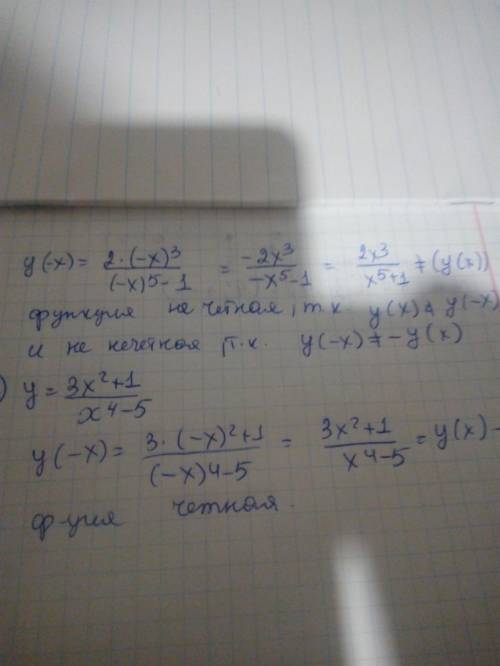 y(-x) = 2·(-x)³/(-x)⁵-1 = -2x³/-x⁵-1 = 2x³/x⁵+1 ≠ (y(x))
функция не четная, т.к. y(x) ≠ y(-x)
и не нечетная т.к. y(-x) ≠ -y(x)
) y = 3x²+1/x⁴-5
y(-x) = 3·(-x)²+1/(-x)4-5 = 3x²+1/x4-5 = y(x) -
ф-ция четная.